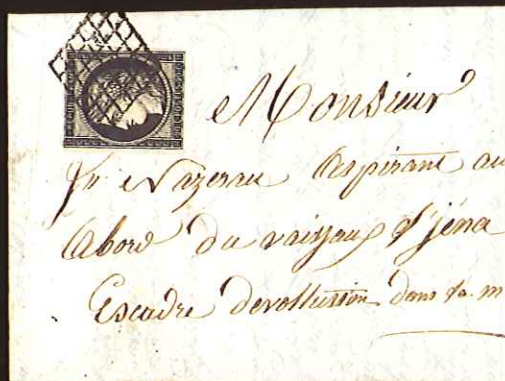 Monsieur
Nazereau Aspirant au
Abord du vaisseau l'jéna
Escadre d'evollution dans la m